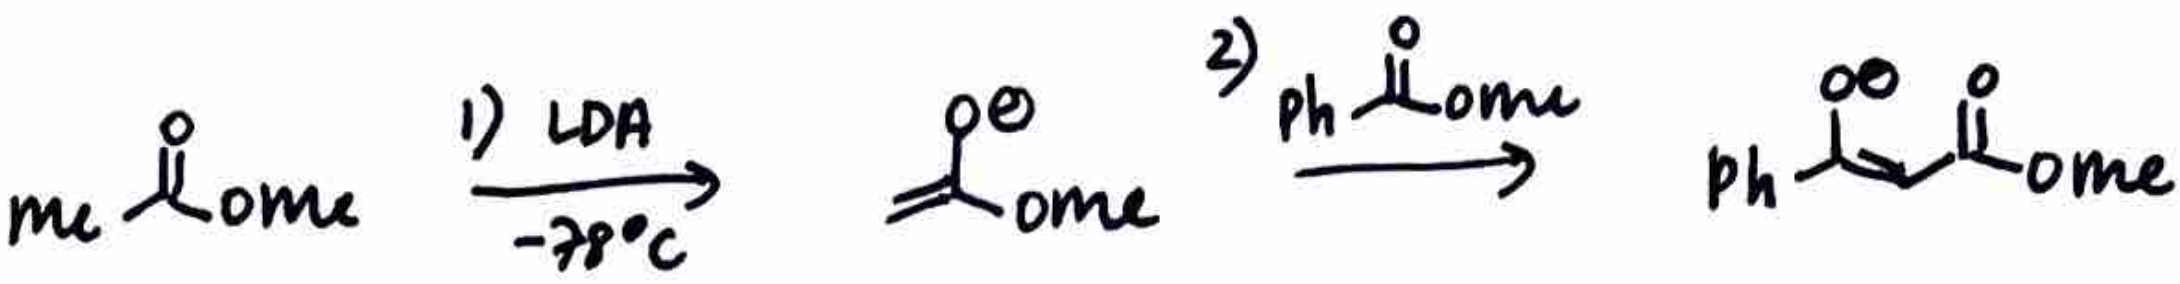 O
Me OMe
1) LDA
-78°C
O⊖
OMe
2) O
Ph OMe
O⊖ O
Ph OMe